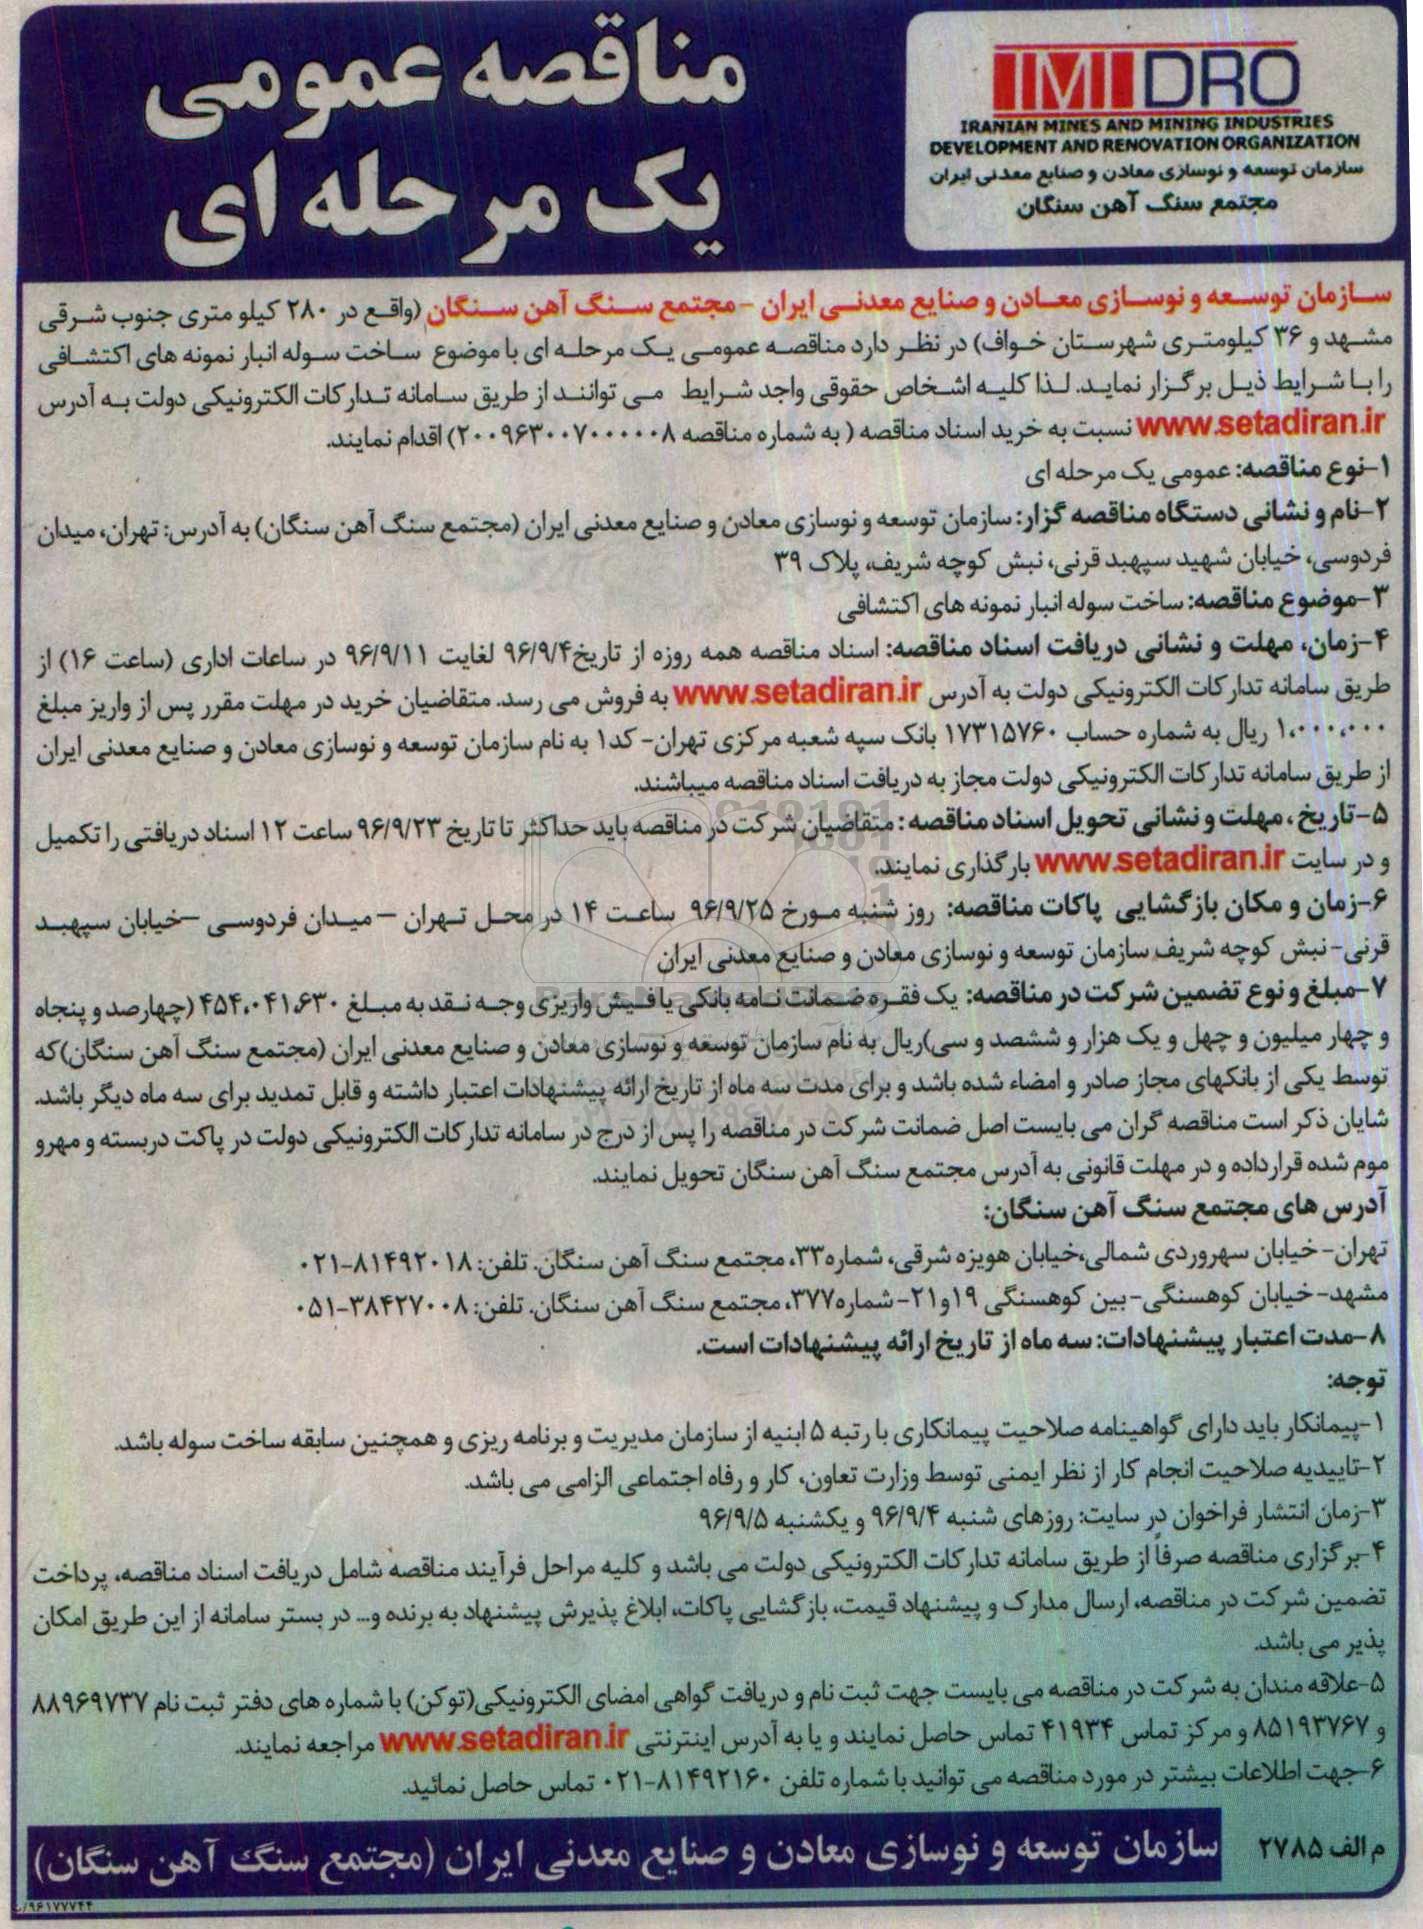 مناقصه عمومی
یک مرحله ای
IMIDRO
IRANIAN MINES AND MINING INDUSTRIES
DEVELOPMENT AND RENOVATION ORGANIZATION
سازمان توسعه و نوسازی معادن و صنایع معدنی ایران
مجتمع سنگ آهن سنگان
سازمان توسعه و نوسازی معادن و صنایع معدنی ایران - مجتمع سنگ آهن سنگان (واقع در ۲۸۰ کیلو متری جنوب شرقی
مشهد و ۳۶ کیلومتری شهرستان خواف) در نظر دارد مناقصه عمومی یک مرحله ای با موضوع ساخت سوله انبار نمونه های اکتشافی
را با شرایط ذیل برگزار نماید. لذا کلیه اشخاص حقوقی واجد شرایط می توانند از طریق سامانه تدارکات الکترونیکی دولت به آدرس
www.setadiran.ir نسبت به خرید اسناد مناقصه ( به شماره مناقصه ۲۰۰۹۶۳۰۰۷۰۰۰۰۰۸) اقدام نمایند.
۱-نوع مناقصه: عمومی یک مرحله ای
۲-نام و نشانی دستگاه مناقصه گزار: سازمان توسعه و نوسازی معادن و صنایع معدنی ایران (مجتمع سنگ آهن سنگان) به آدرس: تهران، میدان
فردوسی، خیابان شهید سپهبد قرنی، نبش کوچه شریف، پلاک ۳۹
۳-موضوع مناقصه: ساخت سوله انبار نمونه های اکتشافی
۴-زمان، مهلت و نشانی دریافت اسناد مناقصه: اسناد مناقصه همه روزه از تاریخ۹۶/۹/۴ لغایت ۹۶/۹/۱۱ در ساعات اداری (ساعت ۱۶) از
طریق سامانه تدارکات الکترونیکی دولت به آدرس www.setadiran.ir به فروش می رسد. متقاضیان خرید در مهلت مقرر پس از واریز مبلغ
۱،۰۰۰،۰۰۰ ریال به شماره حساب ۱۷۳۱۵۷۶۰ بانک سپه شعبه مرکزی تهران- کد۱ به نام سازمان توسعه و نوسازی معادن و صنایع معدنی ایران
از طریق سامانه تدارکات الکترونیکی دولت مجاز به دریافت اسناد مناقصه میباشند.
۵-تاریخ ، مهلت و نشانی تحویل اسناد مناقصه : متقاضیان شرکت در مناقصه باید حداکثر تا تاریخ ۹۶/۹/۲۳ ساعت ۱۲ اسناد دریافتی را تکمیل
و در سایت www.setadiran.ir بارگذاری نمایند.
۶-زمان و مکان بازگشایی پاکات مناقصه: روز شنبه مورخ ۹۶/۹/۲۵ ساعت ۱۴ در محل تهران – میدان فردوسی –خیابان سپهبد
قرنی- نبش کوچه شریف سازمان توسعه و نوسازی معادن و صنایع معدنی ایران
۷-مبلغ و نوع تضمین شرکت در مناقصه: یک فقره ضمانت نامه بانکی یا فیش واریزی وجه نقد به مبلغ ۴۵۴،۰۴۱،۶۳۰ (چهارصد و پنجاه
و چهار میلیون و چهل و یک هزار و ششصد و سی)ریال به نام سازمان توسعه و نوسازی معادن و صنایع معدنی ایران (مجتمع سنگ آهن سنگان)که
توسط یکی از بانکهای مجاز صادر و امضاء شده باشد و برای مدت سه ماه از تاریخ ارائه پیشنهادات اعتبار داشته و قابل تمدید برای سه ماه دیگر باشد.
شایان ذکر است مناقصه گران می بایست اصل ضمانت شرکت در مناقصه را پس از درج در سامانه تدارکات الکترونیکی دولت در پاکت دربسته و مهرو
موم شده قرارداده و در مهلت قانونی به آدرس مجتمع سنگ آهن سنگان تحویل نمایند.
آدرس های مجتمع سنگ آهن سنگان:
تهران- خیابان سهروردی شمالی،خیابان هویزه شرقی، شماره۳۳، مجتمع سنگ آهن سنگان. تلفن: ۸۱۴۹۲۰۱۸-۰۲۱
مشهد- خیابان کوهسنگی- بین کوهسنگی ۱۹و۲۱- شماره۳۷۷، مجتمع سنگ آهن سنگان. تلفن: ۳۸۴۲۷۰۰۸-۰۵۱
۸-مدت اعتبار پیشنهادات: سه ماه از تاریخ ارائه پیشنهادات است.
توجه:
۱-پیمانکار باید دارای گواهینامه صلاحیت پیمانکاری با رتبه ۵ ابنیه از سازمان مدیریت و برنامه ریزی و همچنین سابقه ساخت سوله باشد.
۲-تاییدیه صلاحیت انجام کار از نظر ایمنی توسط وزارت تعاون، کار و رفاه اجتماعی الزامی می باشد.
۳-زمان انتشار فراخوان در سایت: روزهای شنبه ۹۶/۹/۴ و یکشنبه ۹۶/۹/۵
۴-برگزاری مناقصه صرفاً از طریق سامانه تدارکات الکترونیکی دولت می باشد و کلیه مراحل فرآیند مناقصه شامل دریافت اسناد مناقصه، پرداخت
تضمین شرکت در مناقصه، ارسال مدارک و پیشنهاد قیمت، بازگشایی پاکات، ابلاغ پذیرش پیشنهاد به برنده و... در بستر سامانه از این طریق امکان
پذیر می باشد.
۵-علاقه مندان به شرکت در مناقصه می بایست جهت ثبت نام و دریافت گواهی امضای الکترونیکی(توکن) با شماره های دفتر ثبت نام ۸۸۹۶۹۷۳۷
و ۸۵۱۹۳۷۶۷ و مرکز تماس ۴۱۹۳۴ تماس حاصل نمایند و یا به آدرس اینترنتی www.setadiran.ir مراجعه نمایند.
۶-جهت اطلاعات بیشتر در مورد مناقصه می توانید با شماره تلفن ۸۱۴۹۲۱۶۰-۰۲۱ تماس حاصل نمائید.
م الف ۲۷۸۵
سازمان توسعه و نوسازی معادن و صنایع معدنی ایران (مجتمع سنگ آهن سنگان)
۹۶۱۷۷۷۴۴/